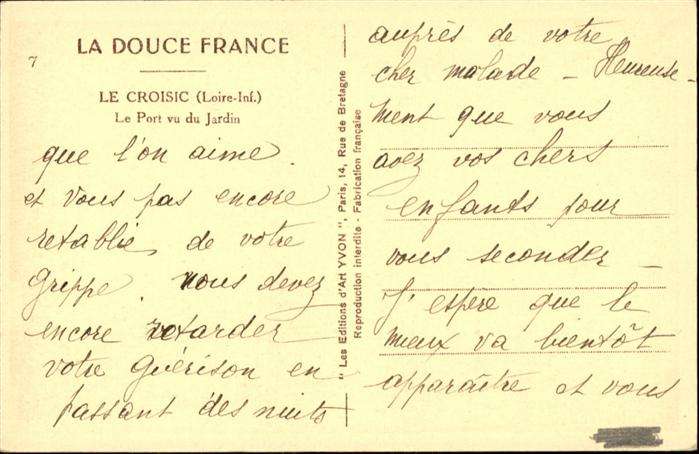 7
LA DOUCE FRANCE
LE CROISIC (Loire-Inf.)
Le Port vu du Jardin
que l'on aime.
et vous pas encore
retablie, de votre
grippe. vous devez
encore retarder
votre guérison en
passant des nuits
" Les Editions d'Art YVON ", Paris, 14, Rue de Bretagne
Reproduction interdite - Fabrication française
auprès de votre
cher malade - Heureuse-
ment que vous
avez vos chers
enfants pour
vous seconder -
J'espère que le
mieux va bientôt
apparaître et vous